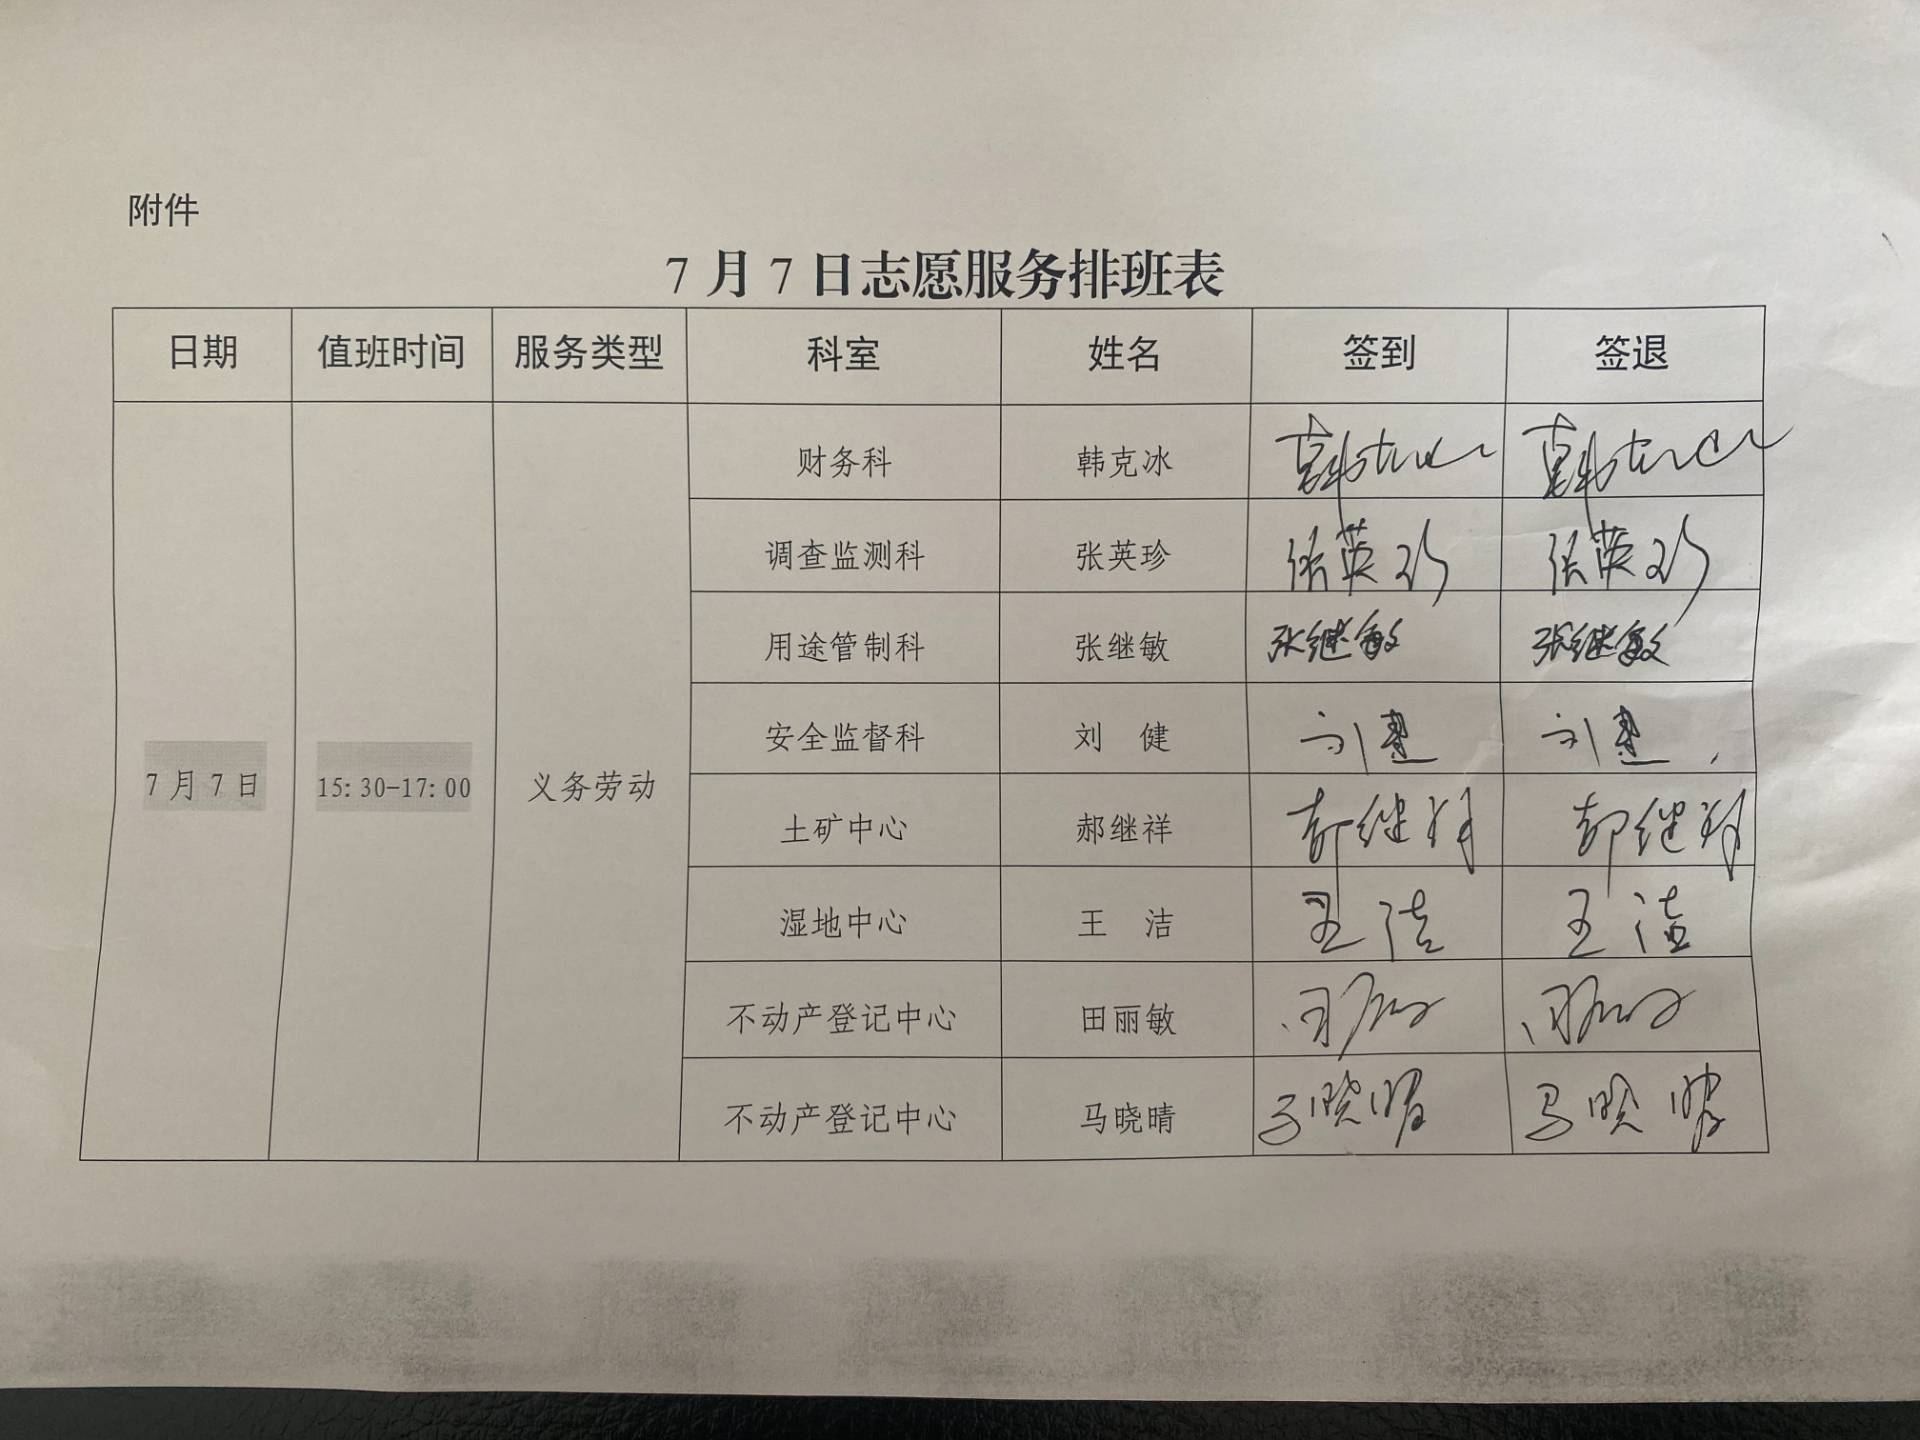 附件
7月7日志愿服务排班表
日期 值班时间 服务类型 科室 姓名 签到 签退
7月7日 15:30-17:00 义务劳动
财务科 韩克冰 韩克冰 韩克冰
调查监测科 张英珍 张英珍 张英珍
用途管制科 张继敏 张继敏 张继敏
安全监督科 刘 健 刘健 刘健
土矿中心 郝继祥 郝继祥 郝继祥
湿地中心 王 洁 王洁 王洁
不动产登记中心 田丽敏 田丽敏 田丽敏
不动产登记中心 马晓晴 马晓晴 马晓晴